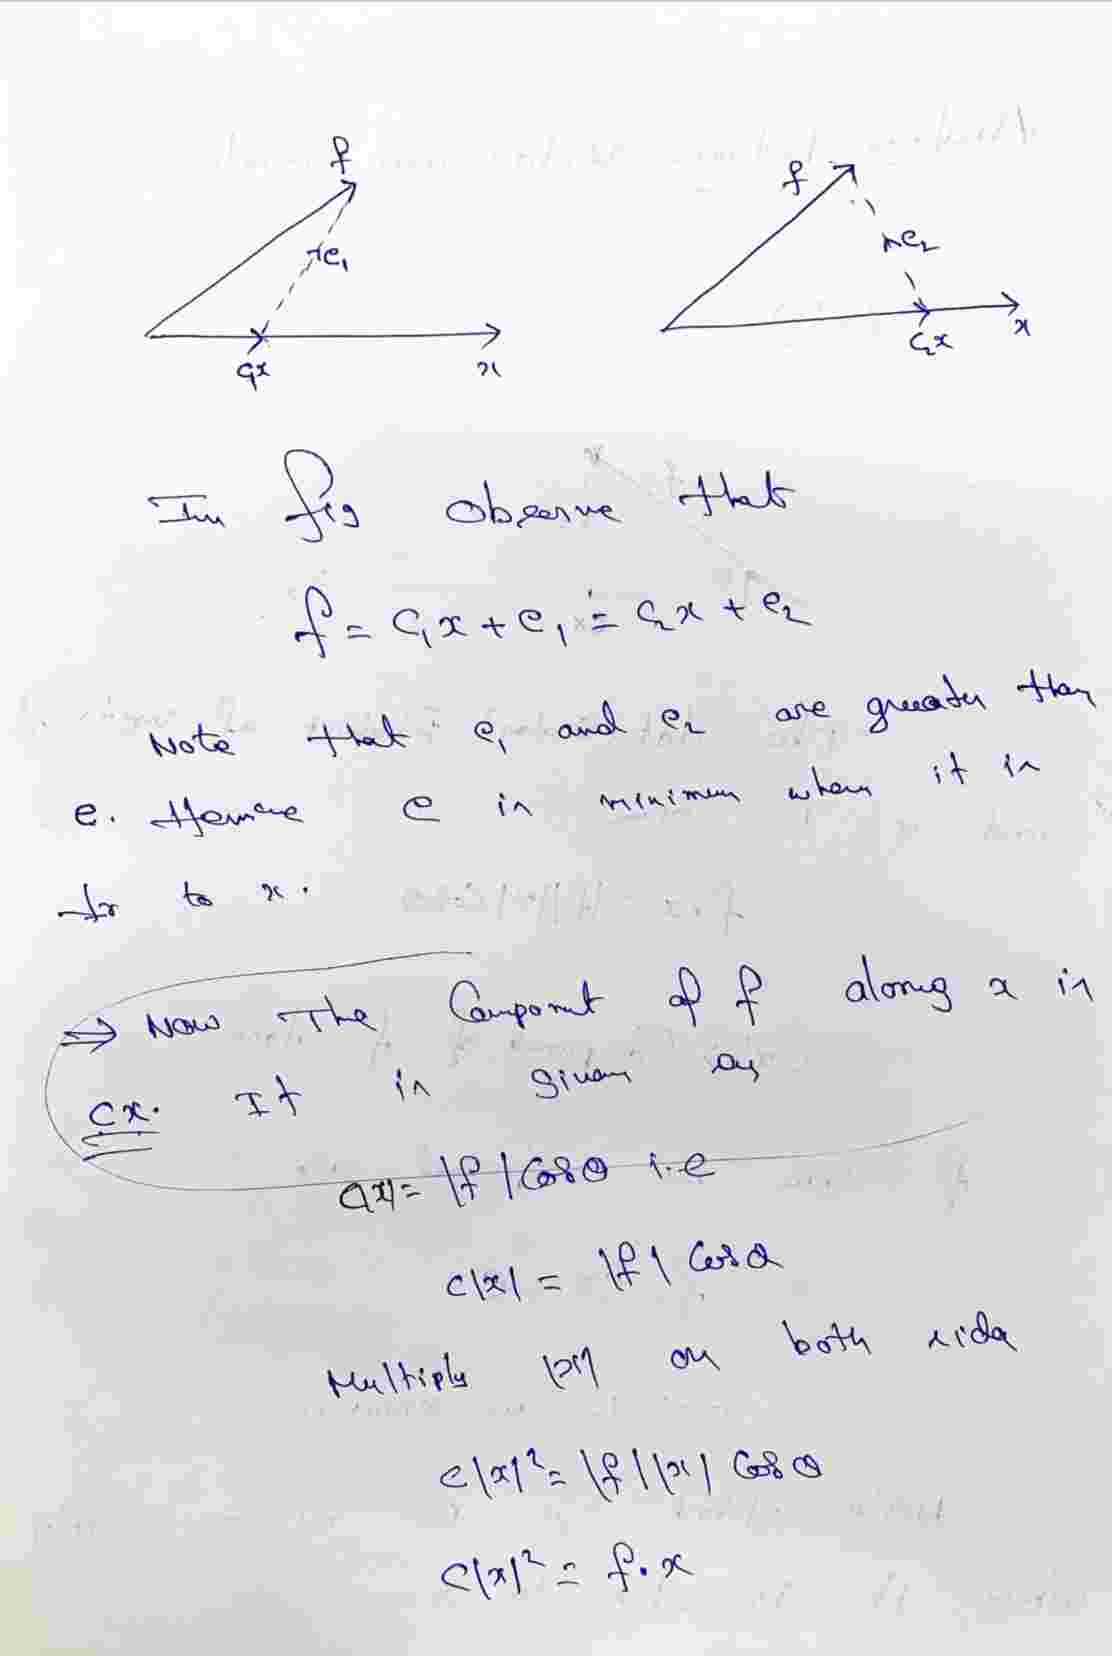 f
f
e₁
e₂
c₁x
x
c₂x
x
In fig observe that
f = c₁x + e₁ = c₂x + e₂
Note that e₁ and e₂ are greater than
e. Hence e is minimum when it is
⊥r to x.
⇒ Now The Component of f along x is
cx. It is given as
c|x| = |f| cosθ i.e
c|x| = |f| cosθ
Multiply |x| on both side
c|x|² = |f||x| cosθ
c|x|² = f.x